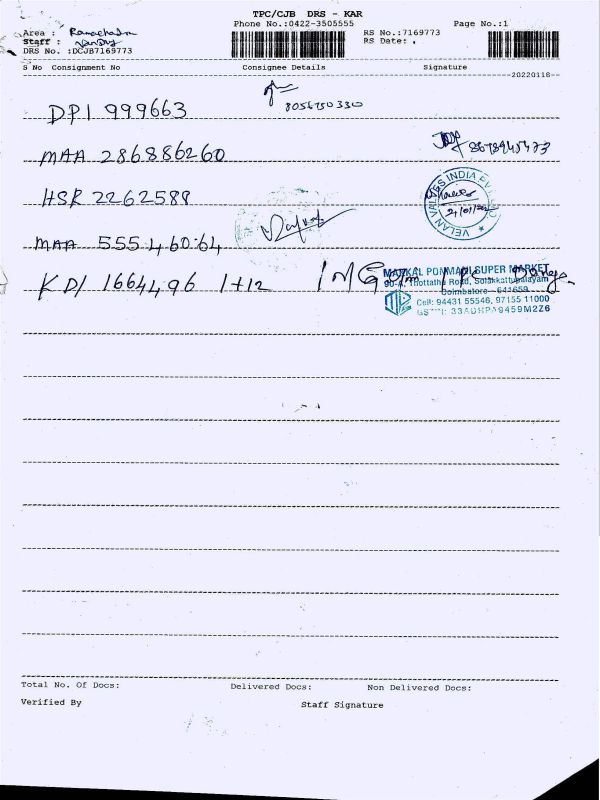 TPC/CJB DRS - KAR
Phone No.:0422-3505555
Page No.:1
Area :
Staff :
DRS No. :DCJB7169773
RS No.:7169773
RS Date:
S No Consignment No Consignee Details Signature
20220118
DPI 999663
8056750330
MAA 286886260
HSR 2262588
VELAN VALVES INDIA PVT
MAA 555460
KDI 1664496 1+12
PONMANI SUPER MARKET
90-A, Thottathu Road, Solakkattupalayam
Coimbatore - 641659
Cell: 94431 55546, 97155 11000
Total No. Of Docs: Delivered Docs: Non Delivered Docs:
Verified By Staff Signature